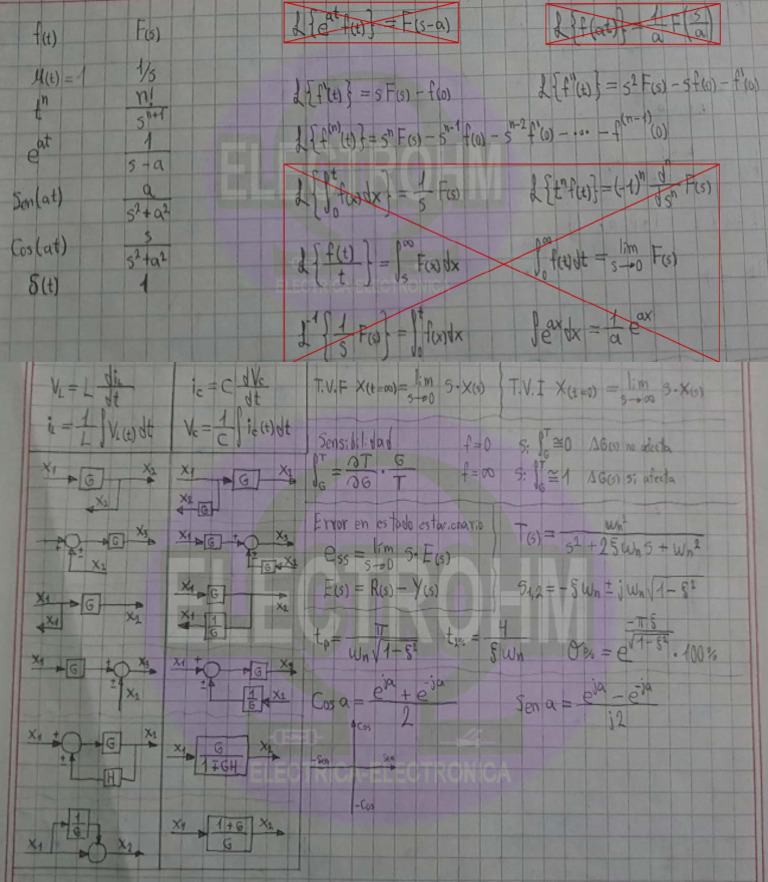 f(t) F(s)
μ(t) = 1 1/s
tⁿ n!/sⁿ⁺¹
eᵃᵗ 1/(s-a)
Sen(at) a/(s²+a²)
Cos(at) s/(s²+a²)
δ(t) 1
ℒ{eᵃᵗ f(t)} = F(s-a) ℒ{f(at)} = 1/a F(s/a)
ℒ{f'(t)} = sF(s) - f(0) ℒ{f''(t)} = s²F(s) - sf(0) - f'(0)
ℒ{f⁽ⁿ⁾(t)} = sⁿF(s) - sⁿ⁻¹f(0) - sⁿ⁻²f'(0) - ... - f⁽ⁿ⁻¹⁾(0)
ℒ{∫₀ᵗ f(x)dx} = 1/s F(s) ℒ{tⁿf(t)} = (-1)ⁿ dⁿ/dsⁿ F(s)
ℒ{f(t)/t} = ∫ₛ^∞ F(x)dx ∫₀^∞ f(t)dt = lim s→0 F(s)
ℒ⁻¹{1/s F(s)} = ∫₀ᵗ f(x)dx ∫eᵃˣdx = 1/a eᵃˣ
ELECTROHM
ELECTRICA-ELECTRONICA
V_L = L di_L/dt i_C = C dV_C/dt
i_L = 1/L ∫V_L(t)dt V_C = 1/C ∫i_C(t)dt
T.V.F X(t=∞) = lim s→0 s·X(s) T.V.I X(t=0) = lim s→∞ s·X(s)
Sensibilidad f=0 si ∫_G^T ≅ 0 ΔG(s) no afecta
∫_G^T = ∂T/∂G · G/T f=∞ si ∫_G^T ≅ 1 ΔG(s) si afecta
Error en estado estacionario T(s) = ωn²/(s²+2ξωn s+ωn²)
e_ss = lim s→0 s·E(s)
E(s) = R(s) - Y(s) s₁,₂ = -ξωn ± jωn√(1-ξ²)
t_p = π/(ωn√(1-ξ²)) t₂% = 4/(ξωn) σ% = e^(-πξ/√(1-ξ²)) · 100%
Cos a = (eʲᵃ + e⁻ʲᵃ)/2 Sen a = (eʲᵃ - e⁻ʲᵃ)/j2
Cos
-Sen Sen
-Cos
X₁ G X₂
X₂
X₁ G X₂
X₂ G
G X₃
X₂
X₁ G X₃
G X₂
X₁ G X₂
X₁
X₁ G X₂
X₁ 1/G
X₁ G X₃
X₂
X₁ G X₃
1/G X₂
X₁ G X₂
H
X₁ G/(1∓GH) X₂
1/G
X₁ X₂
X₁ (1+G)/G X₂
ELECTROHM
ELECTRICA-ELECTRONICA